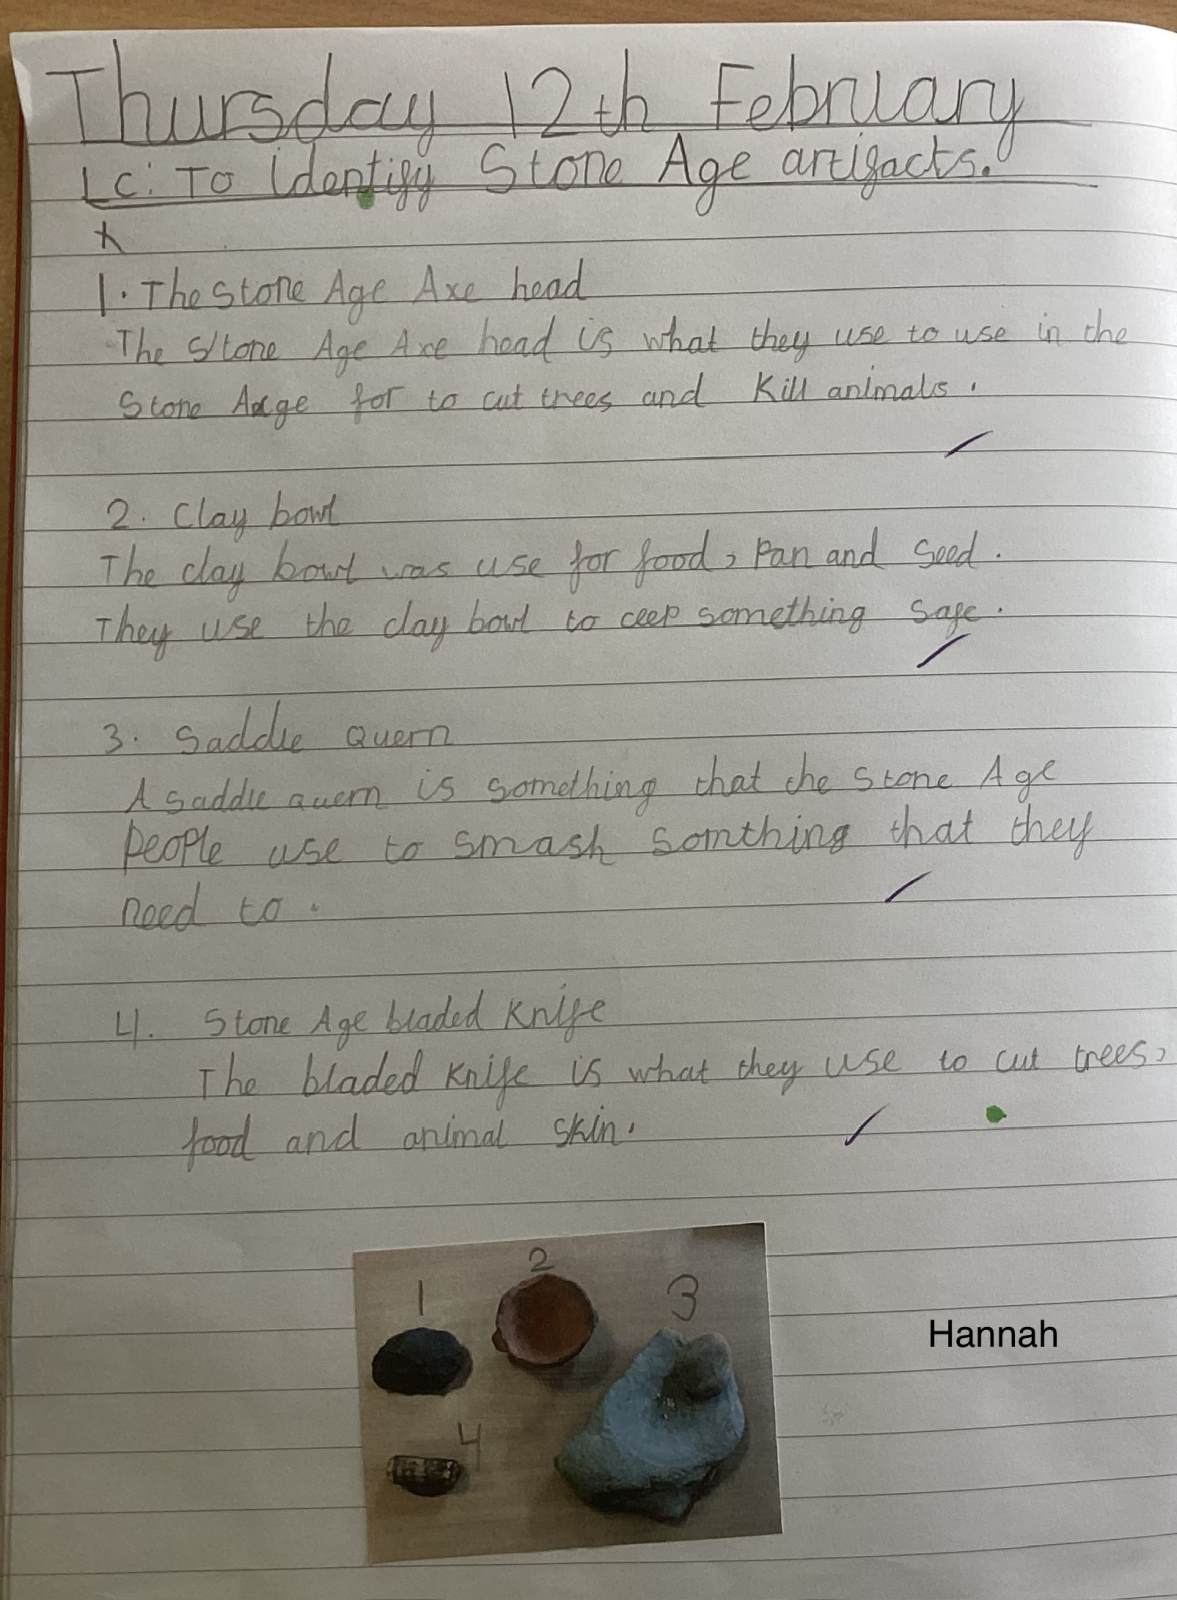 Thursday 12th February
Lc: To identify Stone Age artifacts.
1. The Stone Age Axe head
The Stone Age Axe head is what they use to use in the
Stone Age for to cut trees and kill animals.
2. Clay bowl
The clay bowl was use for food, Pan and Seed.
They use the clay bowl to ceep something safe.
3. Saddle Quern
A saddle quern is something that the Stone Age
People use to smash somthing that they
need to.
4. Stone Age bladed Knife
The bladed Knife is what they use to cut trees,
food and animal skin.
1
2
3
4
Hannah